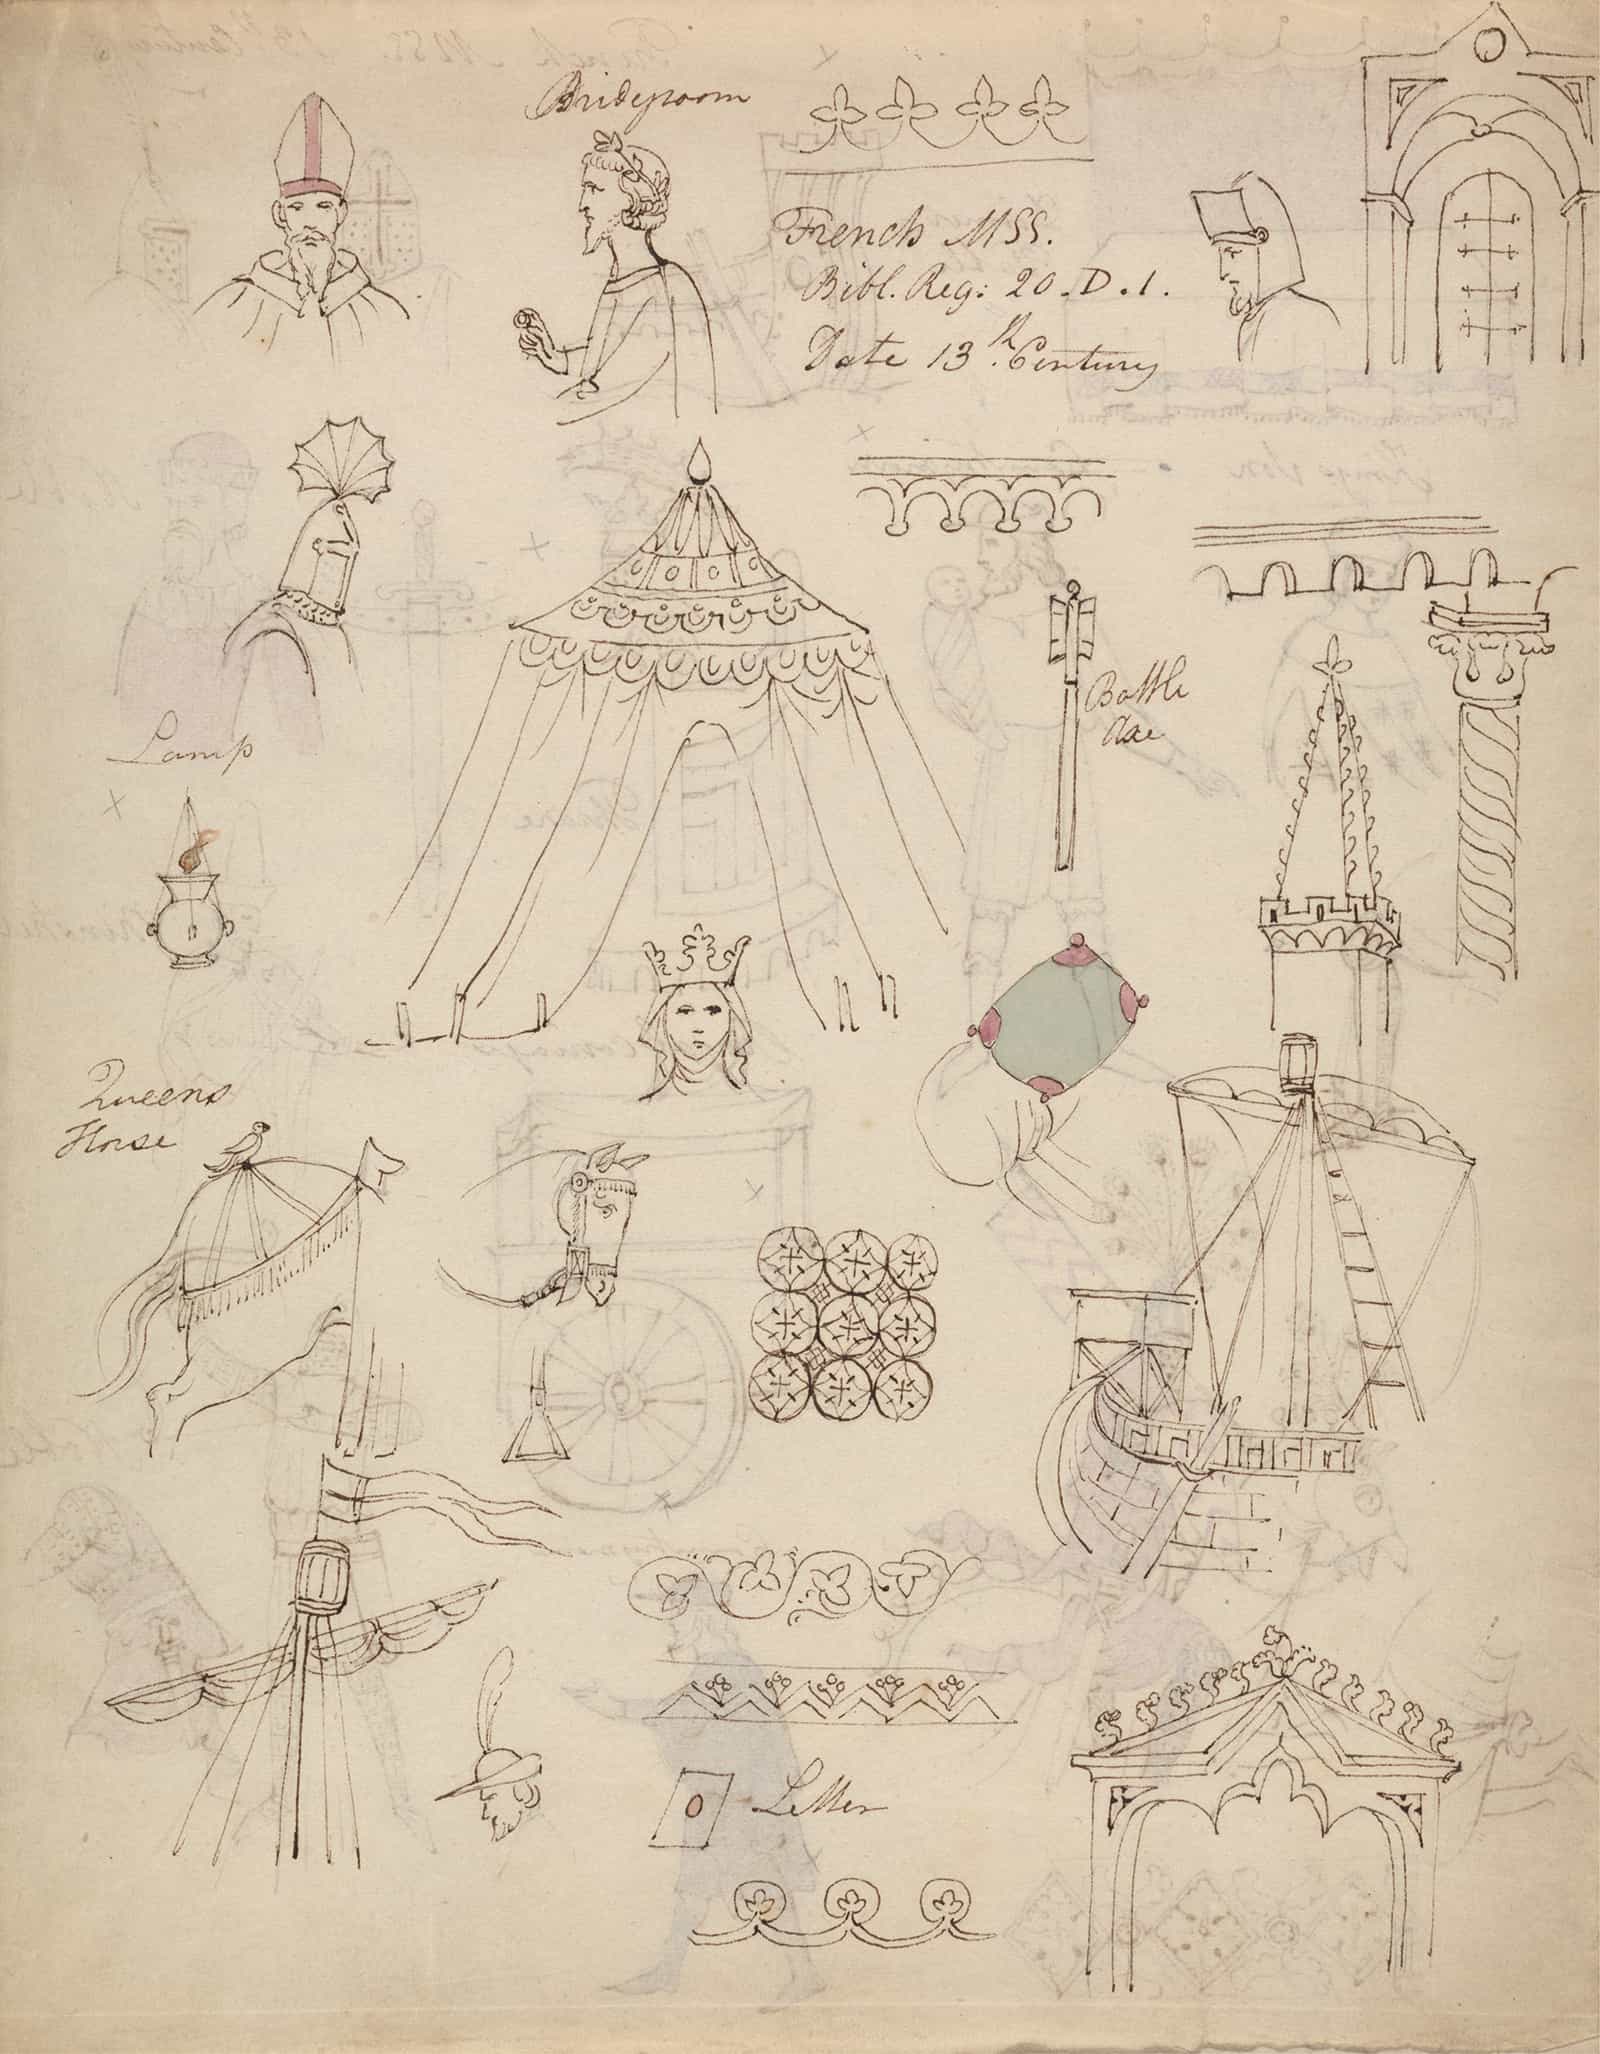 Bridegroom
French MSS.
Bibl. Reg: 20.D.1.
Date 13th. Century
Battle
Axe
Lamp
Queens
Horse
Letter